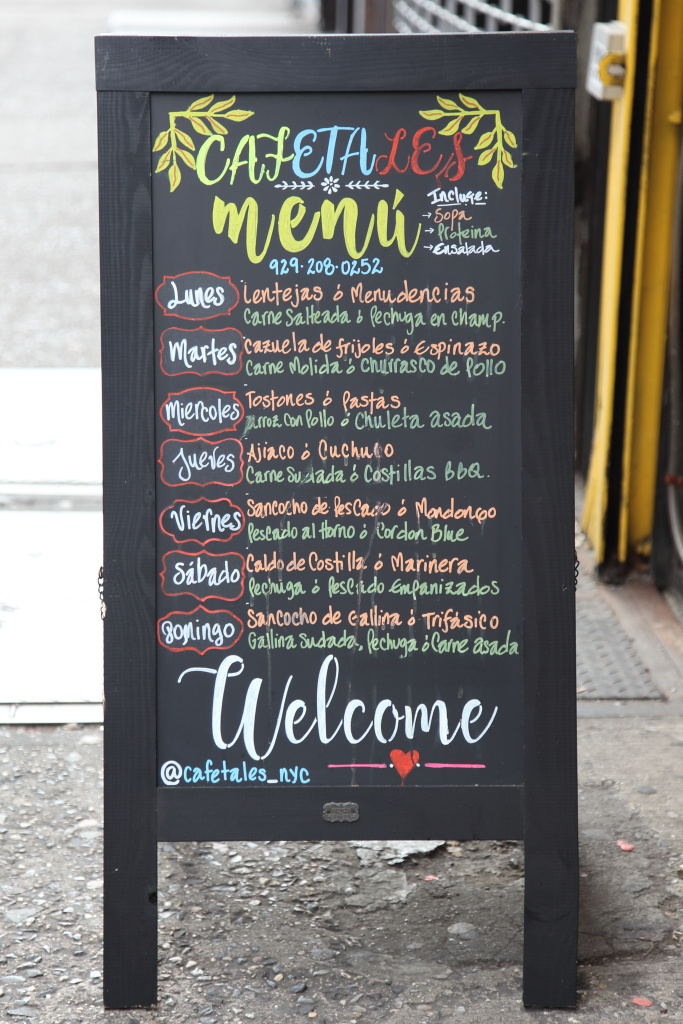 CAFETALES
menú
Incluye:
→Sopa
→Proteina
→Ensalada
929·208·0252
Lunes
Lentejas ó Menudencias
Carne Salteada ó Pechuga en champ.
Martes
Cazuela de frijoles ó Espinazo
Carne Molida ó Churrasco de Pollo
Miercoles
Tostones ó Pastas
Arroz con Pollo ó Chuleta asada
Jueves
Ajiaco ó Cuchuco
Carne Sudada ó Costillas BBQ.
Viernes
Sancocho de Pescado ó Mondongo
Pescado al Horno ó Cordon Blue
Sábado
Caldo de Costilla ó Marinera
Pechuga ó Pescado Empanizados
Domingo
Sancocho de Gallina ó Trifásico
Gallina Sudada, Pechuga ó Carne asada
Welcome
@cafetales_nyc